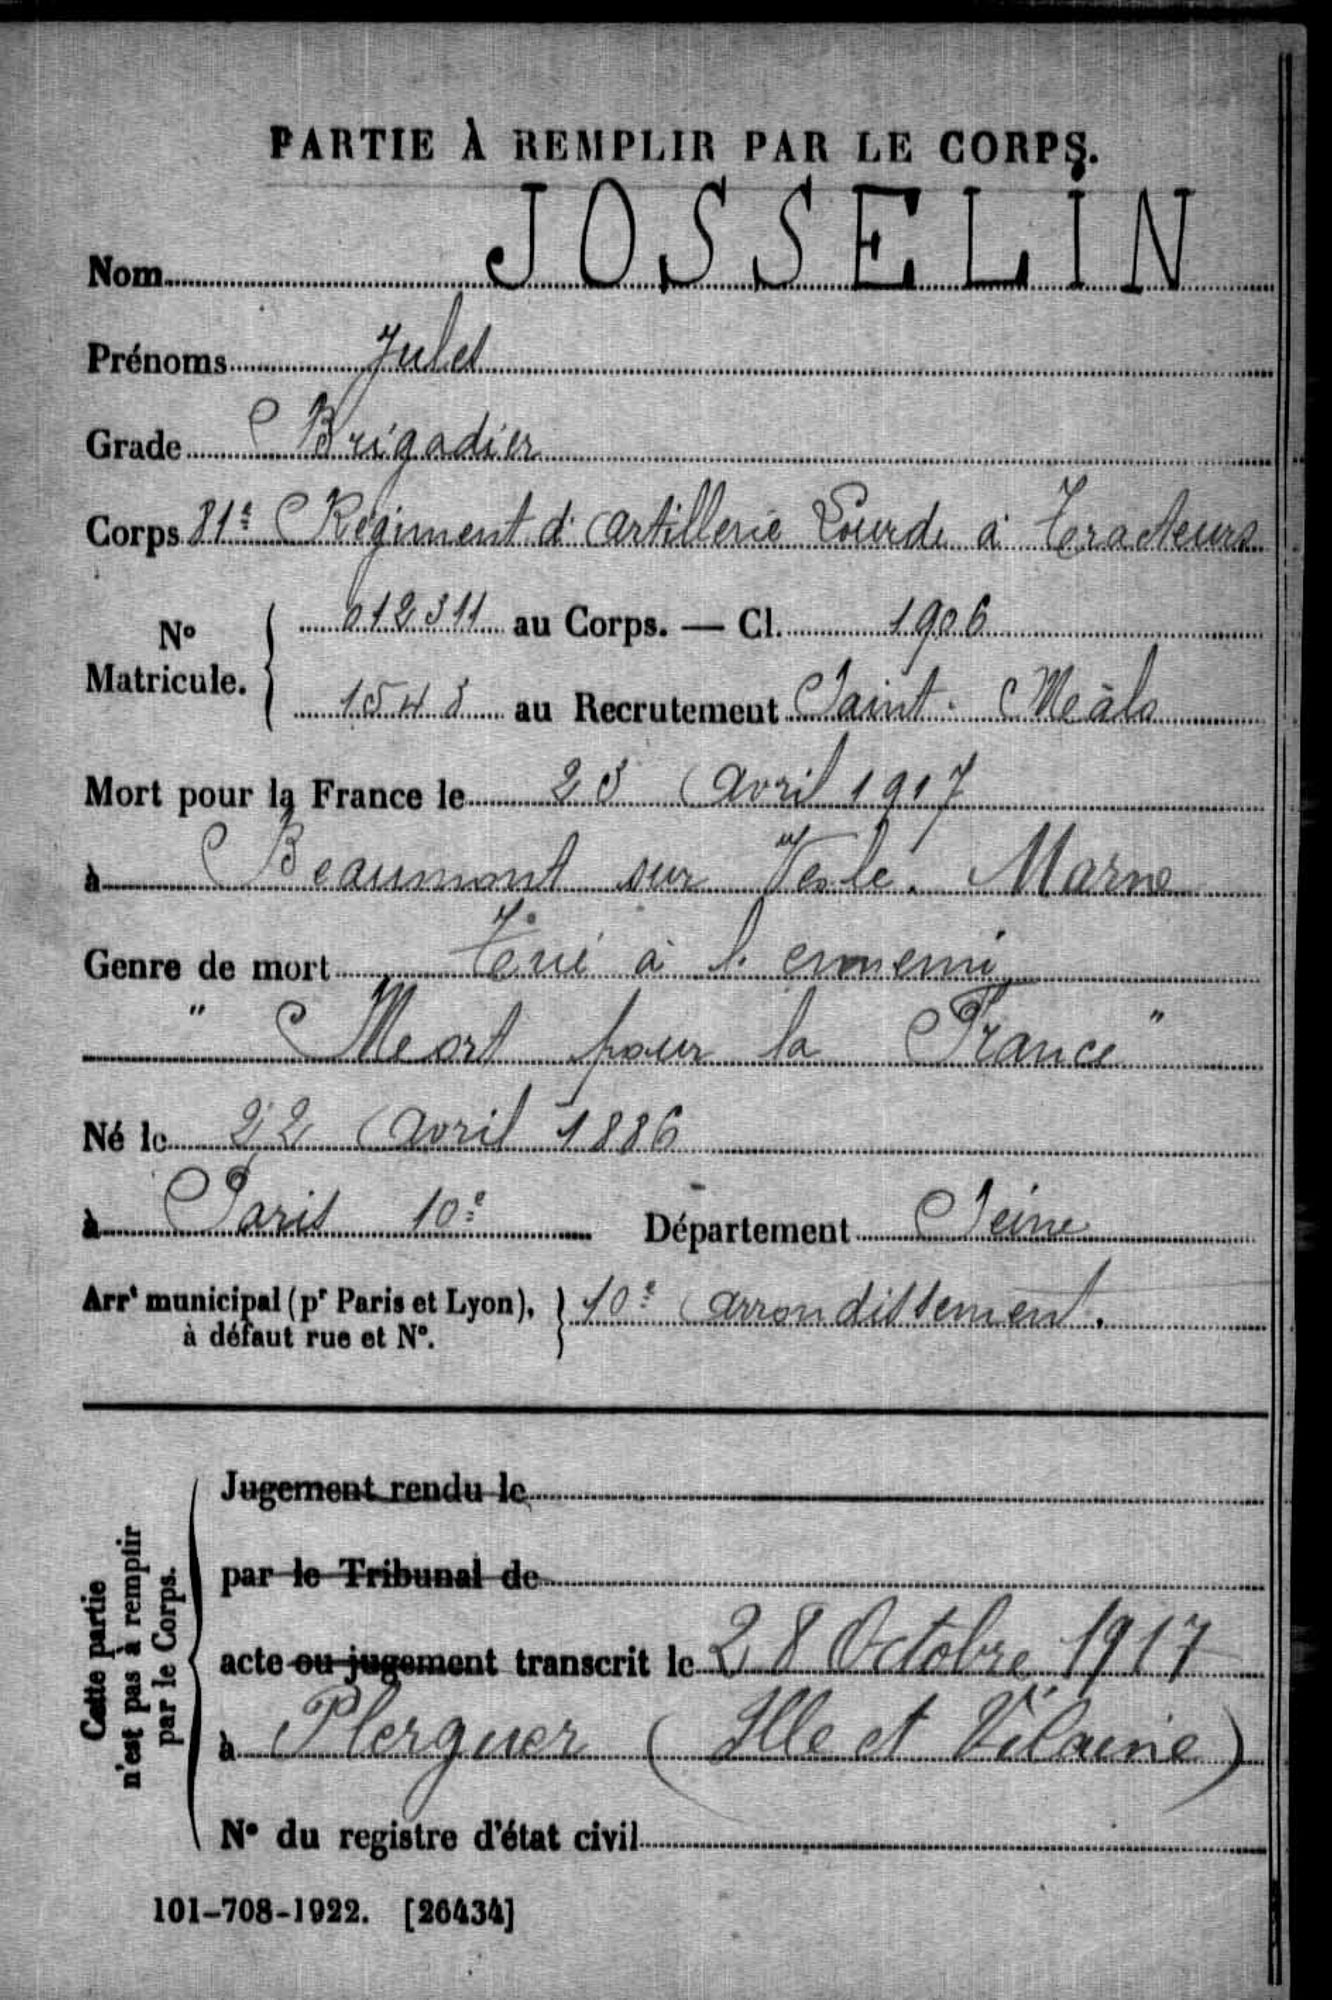 PARTIE À REMPLIR PAR LE CORPS.
Nom JOSSELIN
Prénoms Jules
Grade Brigadier
Corps 81e Régiment d'artillerie Lourde à Tracteurs
No Matricule. { 012311 au Corps. — Cl. 1906
1543 au Recrutement Saint. Mâlo
Mort pour la France le 23 Avril 1917
à Beaumont sur Vesle. Marne
Genre de mort Tué à l'ennemi
" Mort pour la France "
Né le 22 Avril 1886
à Paris 10e Département Seine
Arrt municipal (pr Paris et Lyon), à défaut rue et No. } 10e arrondissement.
Cette partie n'est pas à remplir par le Corps.
Jugement rendu le
par le Tribunal de
acte ou jugement transcrit le 28 Octobre 1917
à Plerguer (Ille et Vilaine)
No du registre d'état civil
101-708-1922. [26434]